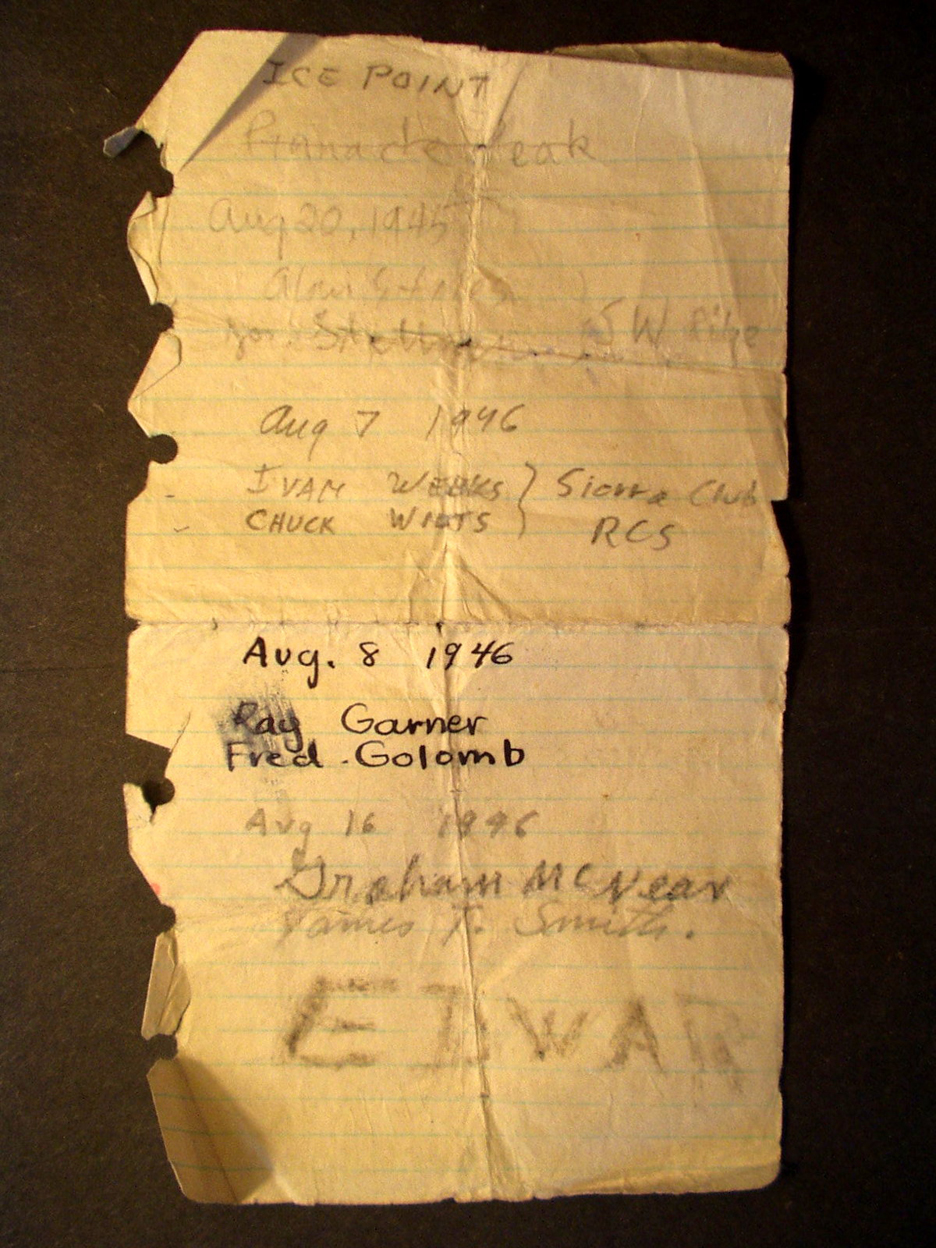 ICE POINT
Pinnacle Peak
Aug 20, 1945
Alan
Jos. SW
Aug 7 1946
IVAN WEEKS } Sierra Club
CHUCK WILTS } RCS
Aug. 8 1946
Ray Garner
Fred Golomb
Aug 16 1946
Graham McNear
James T. Smith.
EDWAR